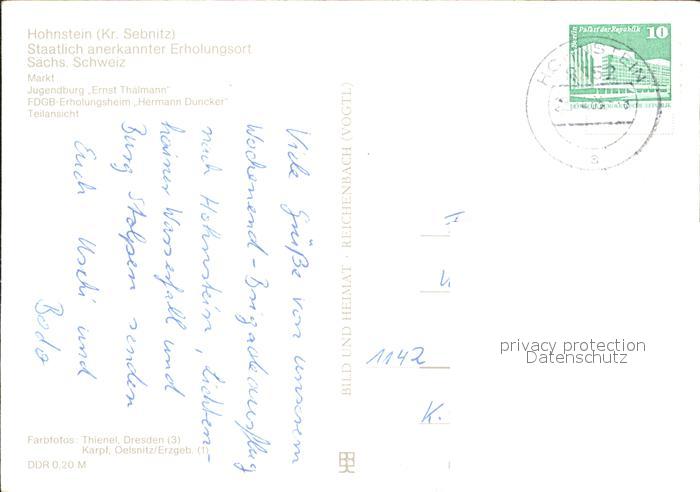 Hohnstein (Kr. Sebnitz)
Staatlich anerkannter Erholungsort
Sächs. Schweiz
Markt
Jugendburg „Ernst Thälmann"
FDGB-Erholungsheim „Hermann Duncker"
Teilansicht
Viele Grüße von unserem
Wochenend-Brigadeausflug
nach Hohnstein, Lichten-
hainer Wasserfall und
Burg Stolpen senden
Euch Uschi und
Bodo
Farbfotos: Thienel, Dresden (3)
Karpf, Oelsnitz/Erzgeb. (1)
DDR 0,20 M
BILD UND HEIMAT · REICHENBACH (VOGTL)
Berlin Palast der Republik
10
HOHNSTEIN
8352
a
1142
K.
privacy protection
Datenschutz